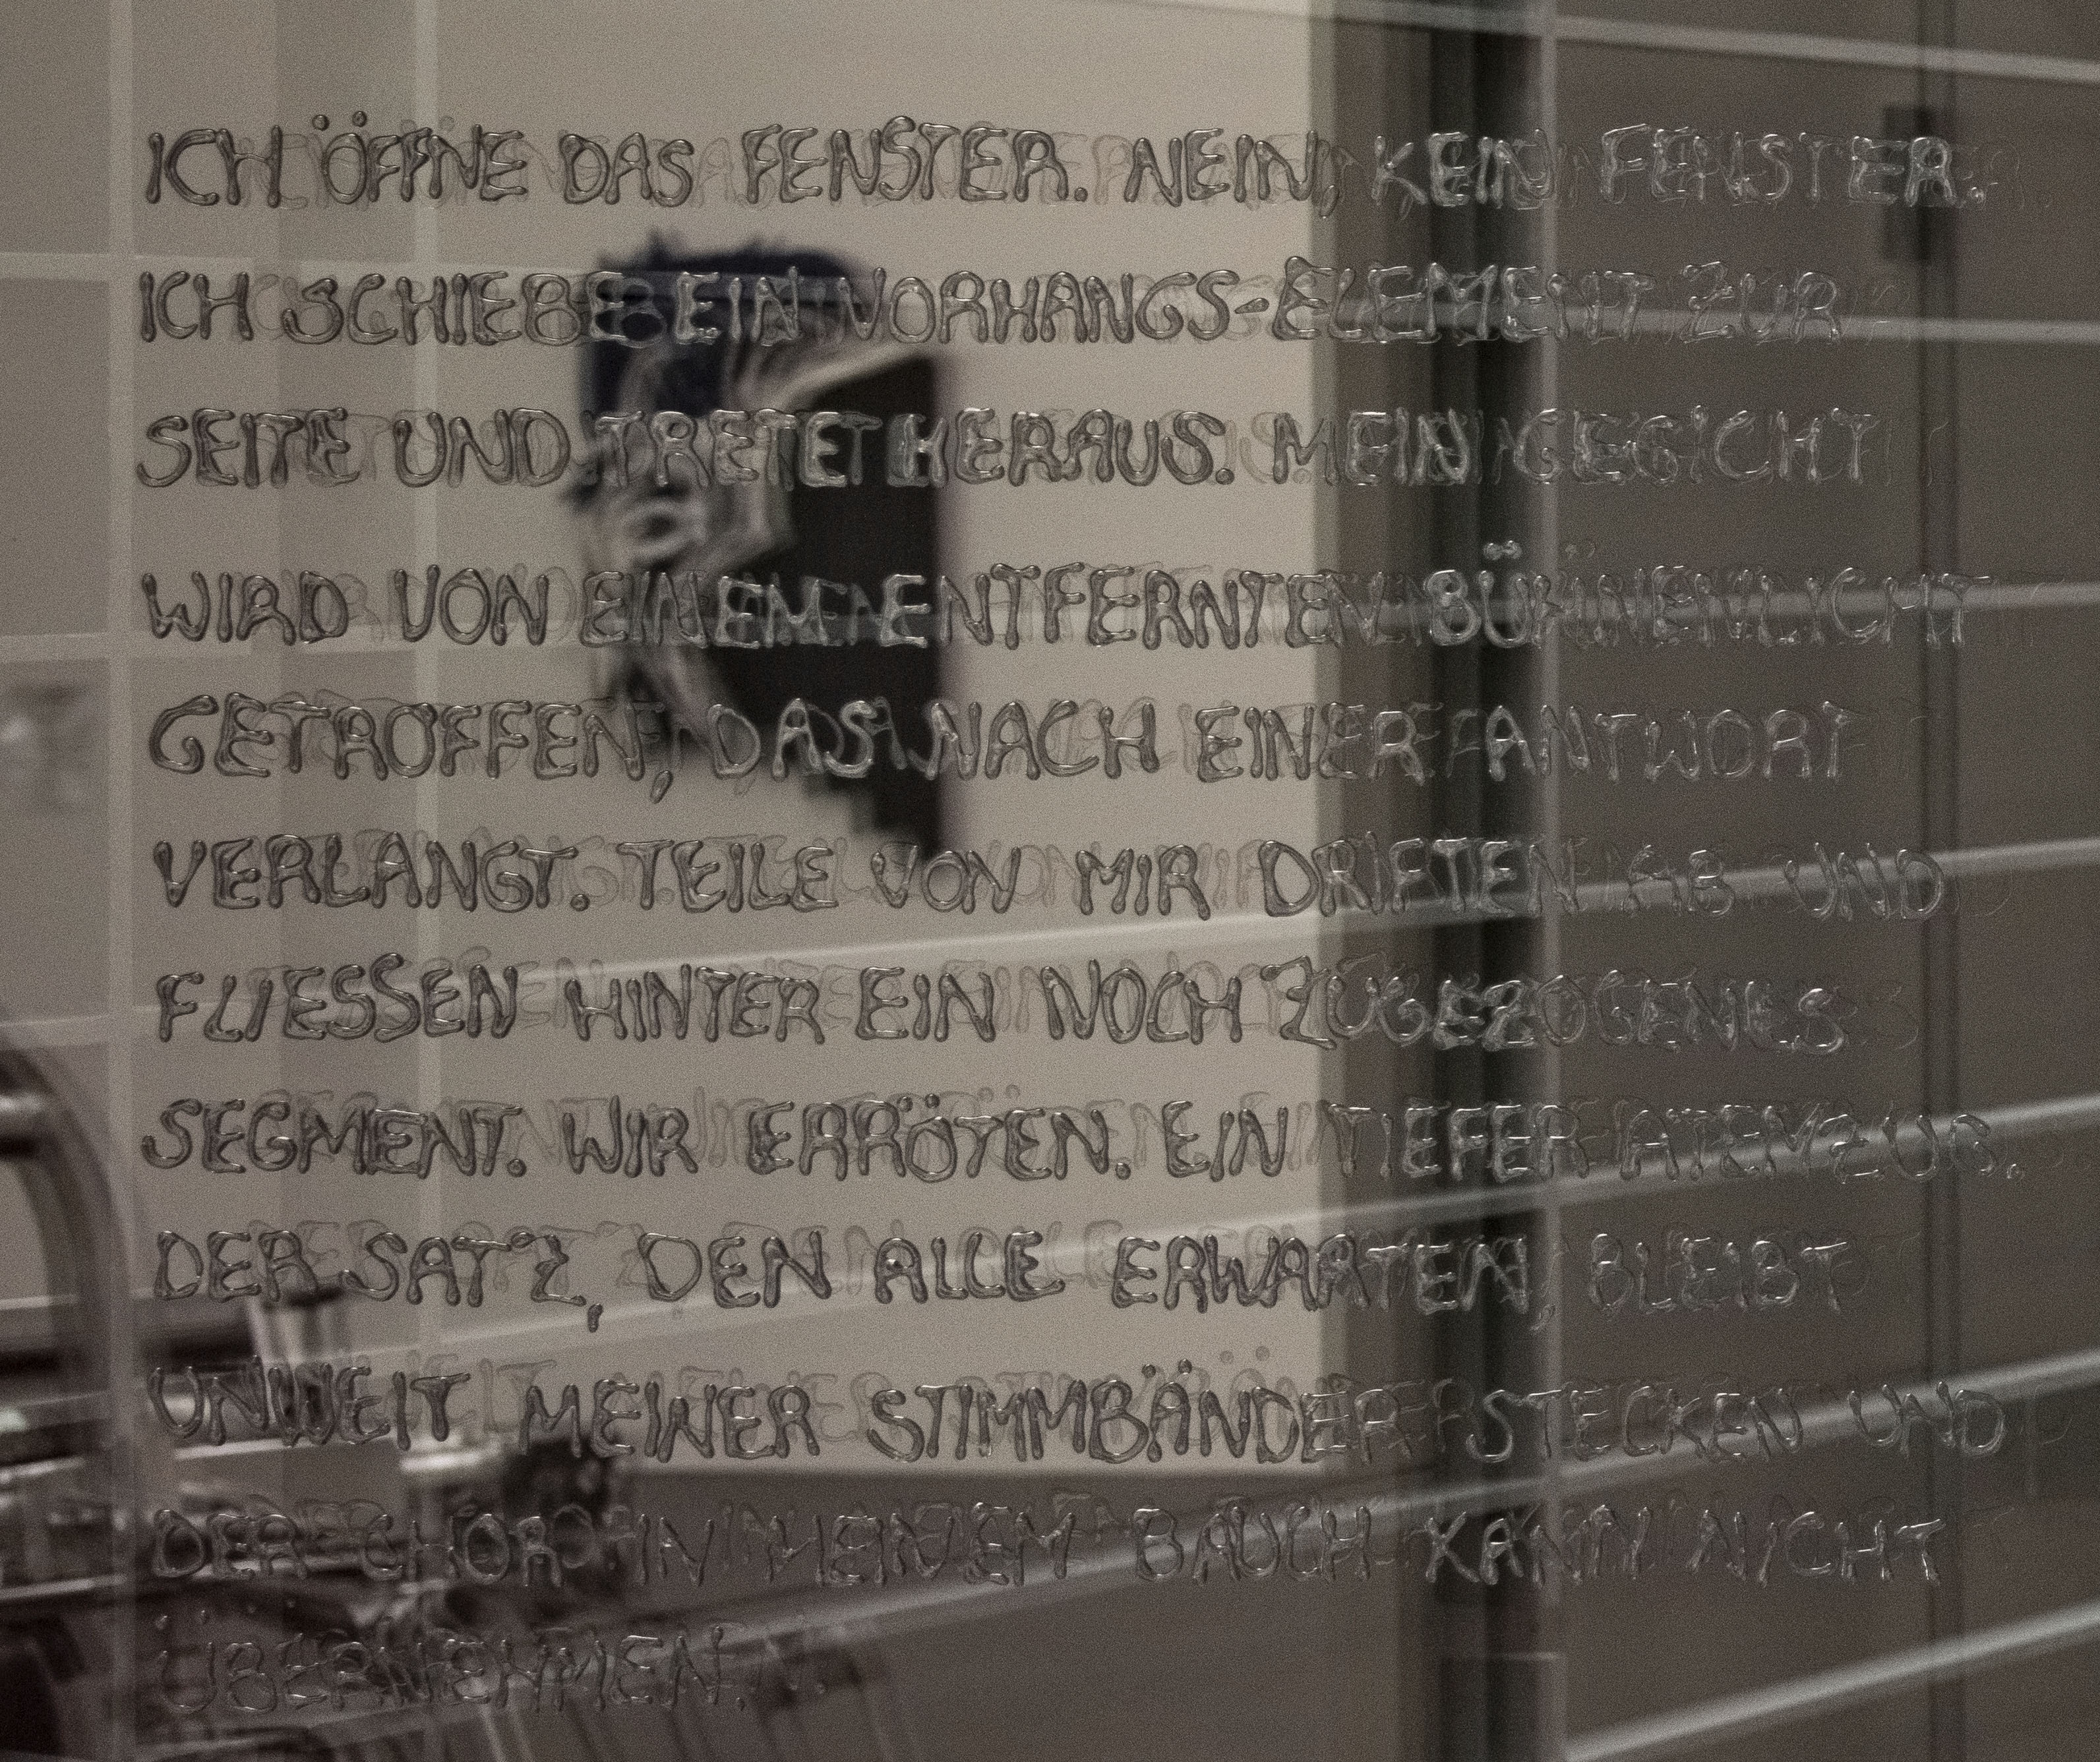 ICH ÖFFNE DAS FENSTER. NEIN, KEIN FENSTER.
ICH SCHIEBE EIN VORHANGS-ELEMENT ZUR
SEITE UND TRETE HERAUS. MEIN GESICHT
WIRD VON EINEM ENTFERNTEN BÜHNENLICHT
GETROFFEN, DAS NACH EINER ANTWORT
VERLANGT. TEILE VON MIR DRIFTEN AB UND
FLIESSEN HINTER EIN NOCH ZUGEZOGENES
SEGMENT. WIR ERRÖTEN. EIN TIEFER ATEMZUG.
DER SATZ, DEN ALLE ERWARTEN, BLEIBT
UNWEIT MEINER STIMMBÄNDER STECKEN UND
DER CHOR IN MEINEM BAUCH KANN NICHT
ÜBERNEHMEN.